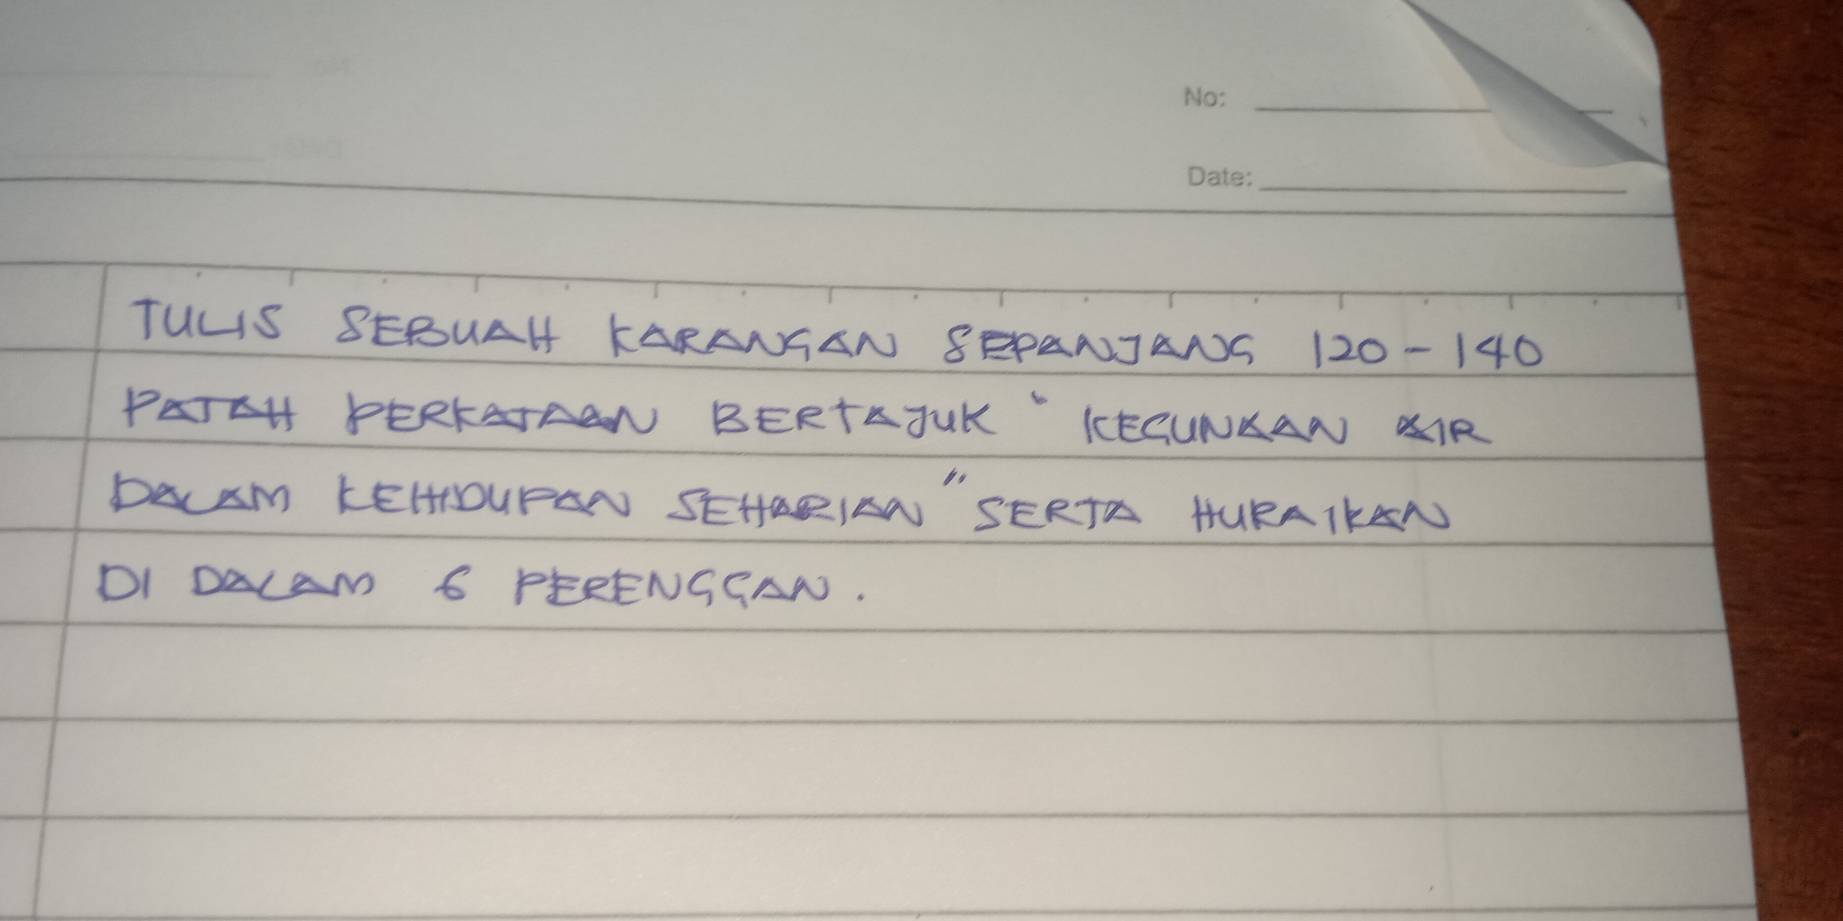 No:
Date:
TULIS SEBUAH KARANGAN SEPANJANG 120-140
PATAH PERKATAAN BERTAJUK "KEGUNAAN AIR
DALAM KEHIDUPAN SEHARIAN" SERTA HURAIKAN
DI DALAM 6 PERENGGAN.